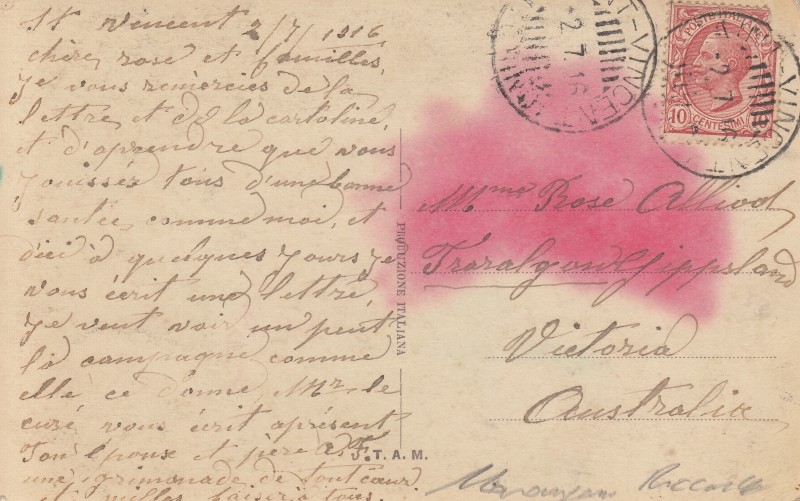 St Vincent 2/7/1916
chère rose et familles,
Je vous remèrcies de la
lettre et de la cartoline
et d'aprendre que vous
Jouissés tous d'une bonne
santée, comme moi, et
d'ici à quelques Jours Je
vous ècrit une lettre,
Je vent voir un peut
la campagne comme
elle ce donne, Mr le
curé vous ècrit aprésent
Ton èpoux et père
une de tout cœur
et milles baisers a tous.
PRODUZIONE ITALIANA
S.T.A.M.
ST-VINCENT
2.7.16
POSTE ITALIANE
10
CENTESIMI
ST-VINCENT
2.7.16
Mme Rose Alliod
Traralgon Gippsland
Victoria
Australia